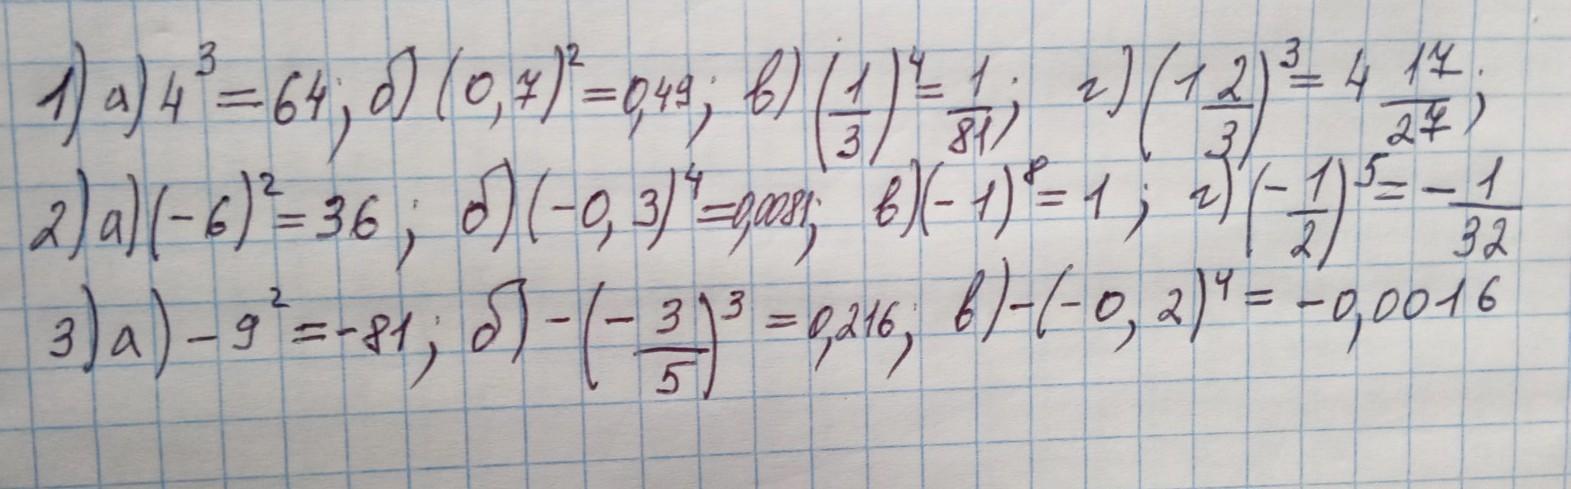 1) а) 4³ = 64; б) (0,7)² = 0,49; в) (1/3)⁴ = 1/81; г) (1 2/3)³ = 4 17/27;
2) а) (-6)² = 36; б) (-0,3)⁴ = 0,0081; в) (-1)⁸ = 1; г) (-1/2)⁵ = -1/32
3) а) -9² = -81; б) -(-3/5)³ = 0,216; в) -(-0,2)⁴ = -0,0016